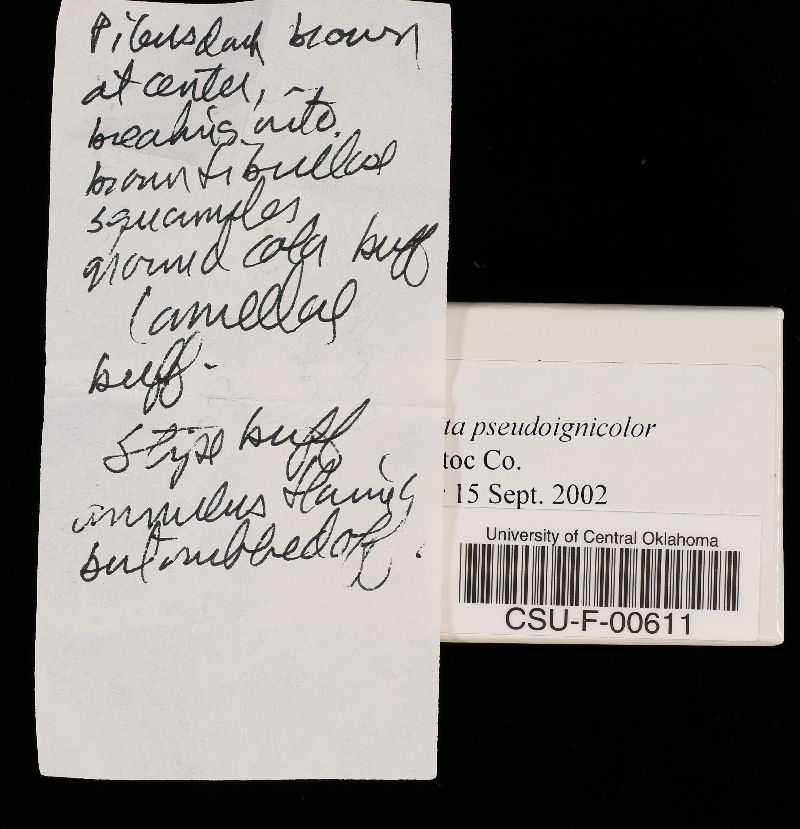 Pileus dark brown
at center,
breaking into
brown fibrillose
squamules
ground color buff
lamellae
buff.
Stipe buff
annulus
but rubbed off.
ta pseudoignicolor
toc Co.
15 Sept. 2002
University of Central Oklahoma
CSU-F-00611